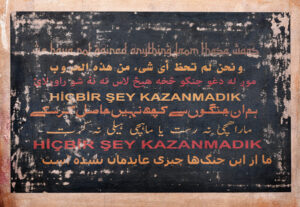 we have not gained anything from these wars
ونحن لم نحظ أي شيء من هذه الحروب
موږ له دغو جنګو څخه هیڅ لاس ته نه
HİÇBİR ŞEY KAZANMADIK
ہم ان جنگوں سے کچھ نہیں حاصل کر سکے
HİÇBİR ŞEY KAZANMADIK
ما از این جنگ‌ها چیزی عایدمان نشده است